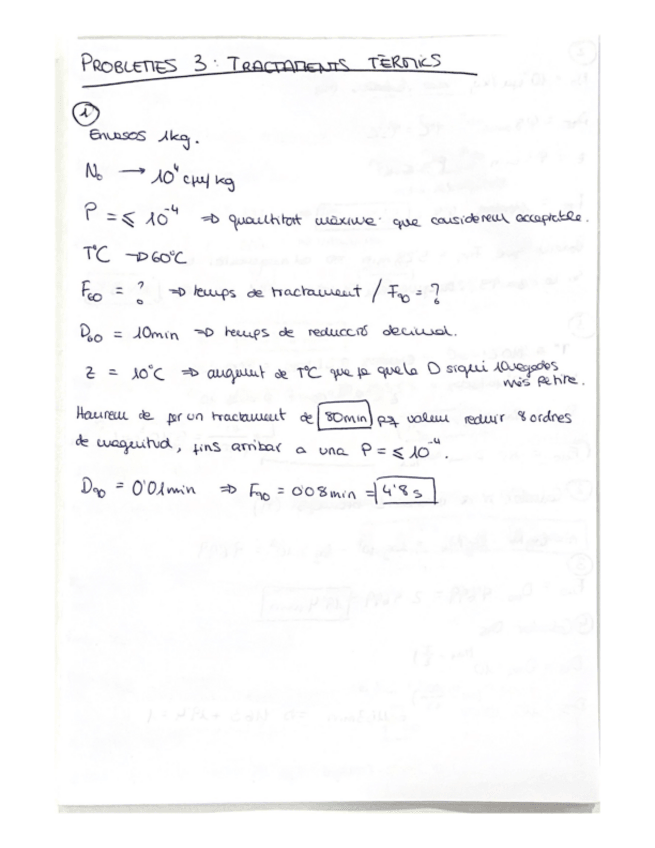 PROBLEMES 3: TRACTAMENTS TÈRMICS
1
Envasos 1kg.
N₀ → 10⁴ cfu/kg
P = ≤ 10⁻⁴ ⇒ quantitat màxima que considerem acceptable.
T°C → 60°C
F₆₀ = ? ⇒ temps de tractament / F₉₀ = ?
D₆₀ = 10min ⇒ temps de reducció decimal.
z = 10°C ⇒ augment de T°C que fa que la D sigui 10 vegades
més petita.
Haurem de fer un tractament de 80min pq volem reduir 8 ordres
de magnitud, fins arribar a una P = ≤ 10⁻⁴.
D₉₀ = 0'01min ⇒ F₉₀ = 0'08min = 4'8s